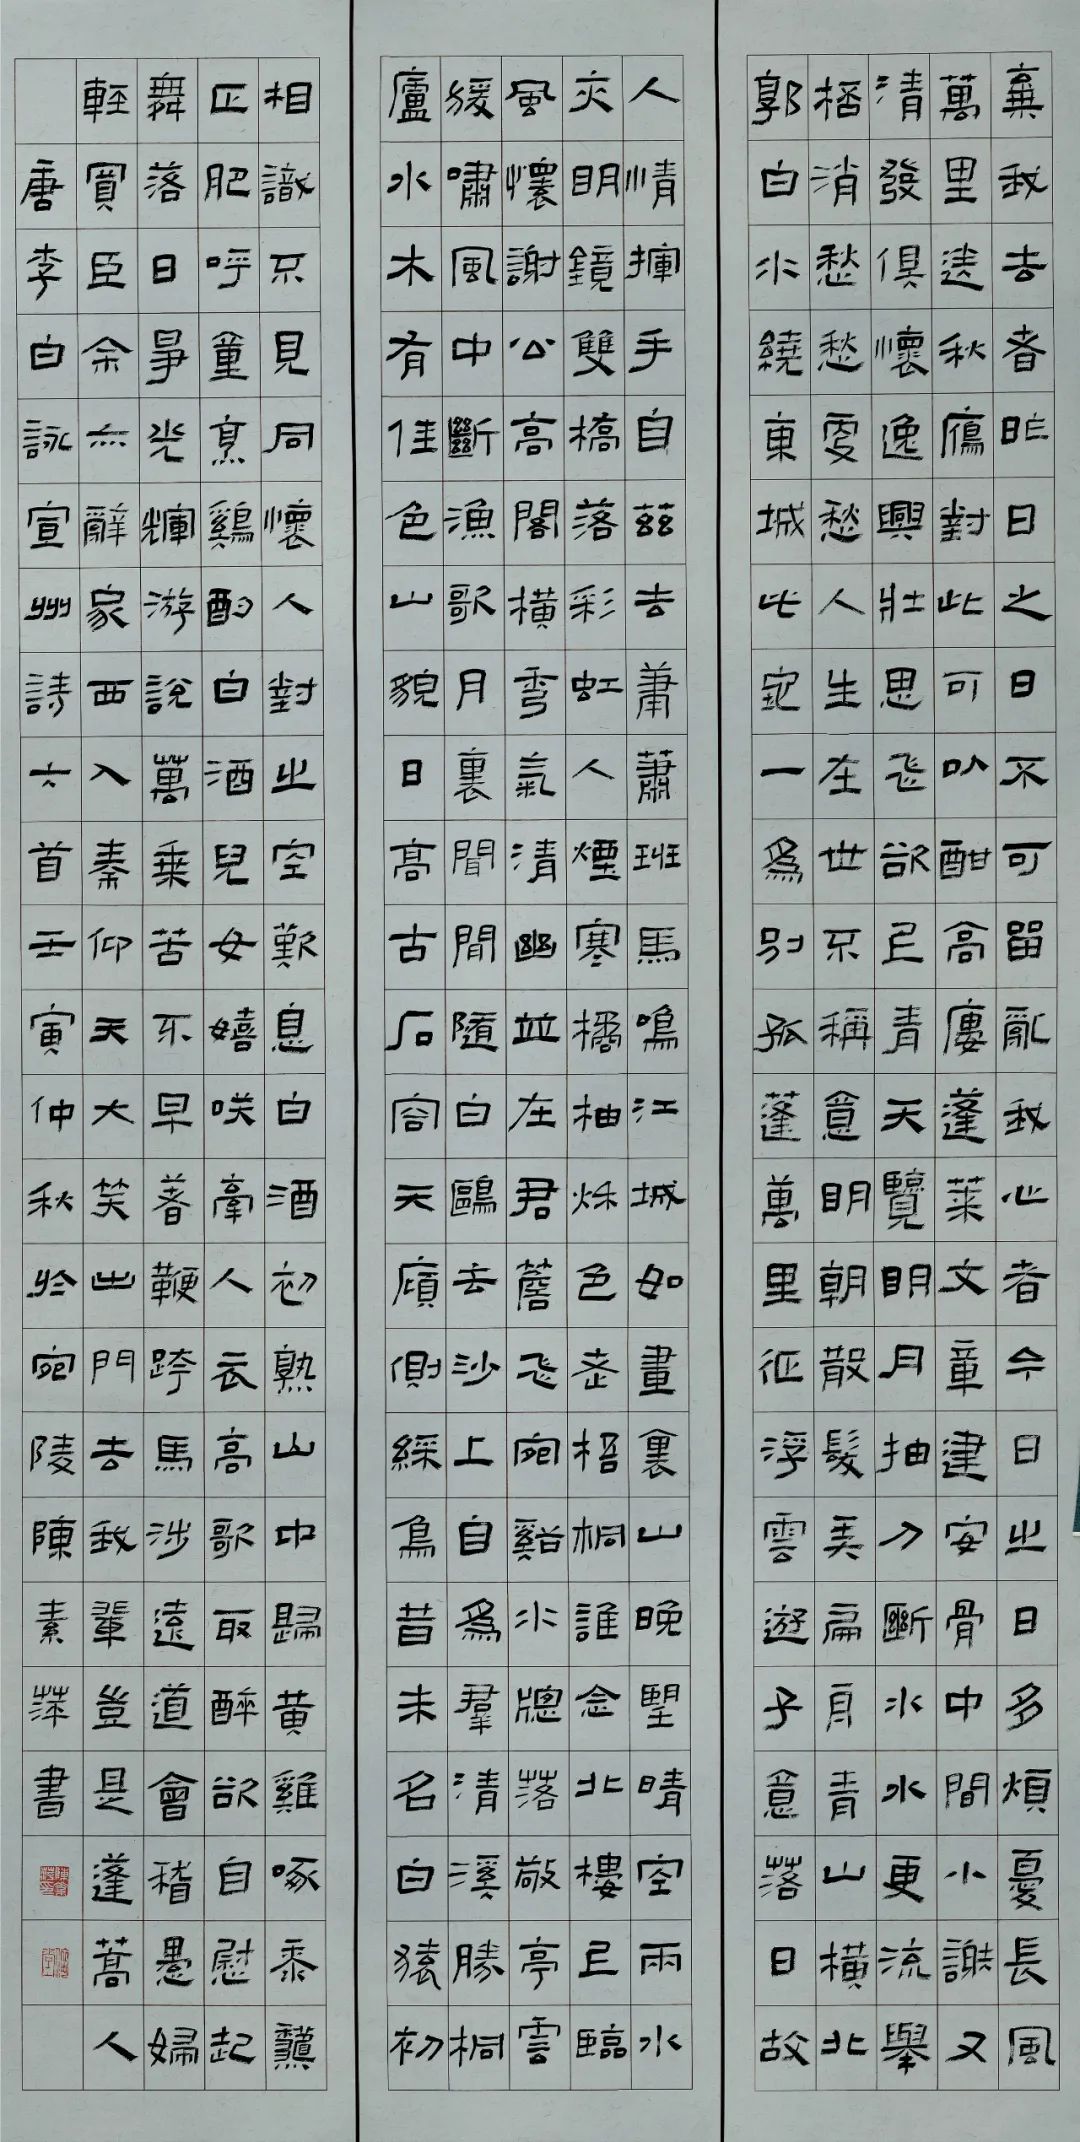 棄我去者昨日之日不可留亂我心者今日之日多煩憂長風
萬里送秋鴈對此可以酣高樓蓬萊文章建安骨中間小謝又
清發俱懷逸興壯思飛欲上青天覽明月抽刀斷水水更流舉
桮消愁愁更愁人生在世不稱意明朝散髮弄扁舟青山橫北
郭白水繞東城此地一為別孤蓬萬里征浮雲遊子意落日故
人情揮手自茲去蕭蕭班馬鳴江城如畫裏山晚望晴空兩水
夾明鏡雙橋落彩虹人煙寒橘柚秋色老梧桐誰念北樓上臨
風懷謝公高閣橫秀氣清幽並在君簷飛宛谿水窗落敬亭雲
猨嘯風中斷漁歌月裏聞閒隨白鷗去沙上自為羣清溪勝桐
廬水木有佳色山貌日高古石容天傾側綵鳥昔未名白猿初
相識不見同懷人對之空歎息白酒初熟山中歸黃雞啄黍龝
正肥呼童烹鷄酌白酒兒女嬉咲牽人衣高歌取醉欲自慰起
舞落日爭光輝游說萬乘苦不早著鞭跨馬涉遠道會稽愚婦
輕買臣余亦辭家西入秦仰天大笑出門去我輩豈是蓬蒿人
唐李白詠宣州詩六首壬寅仲秋於宛陵陳素萍書